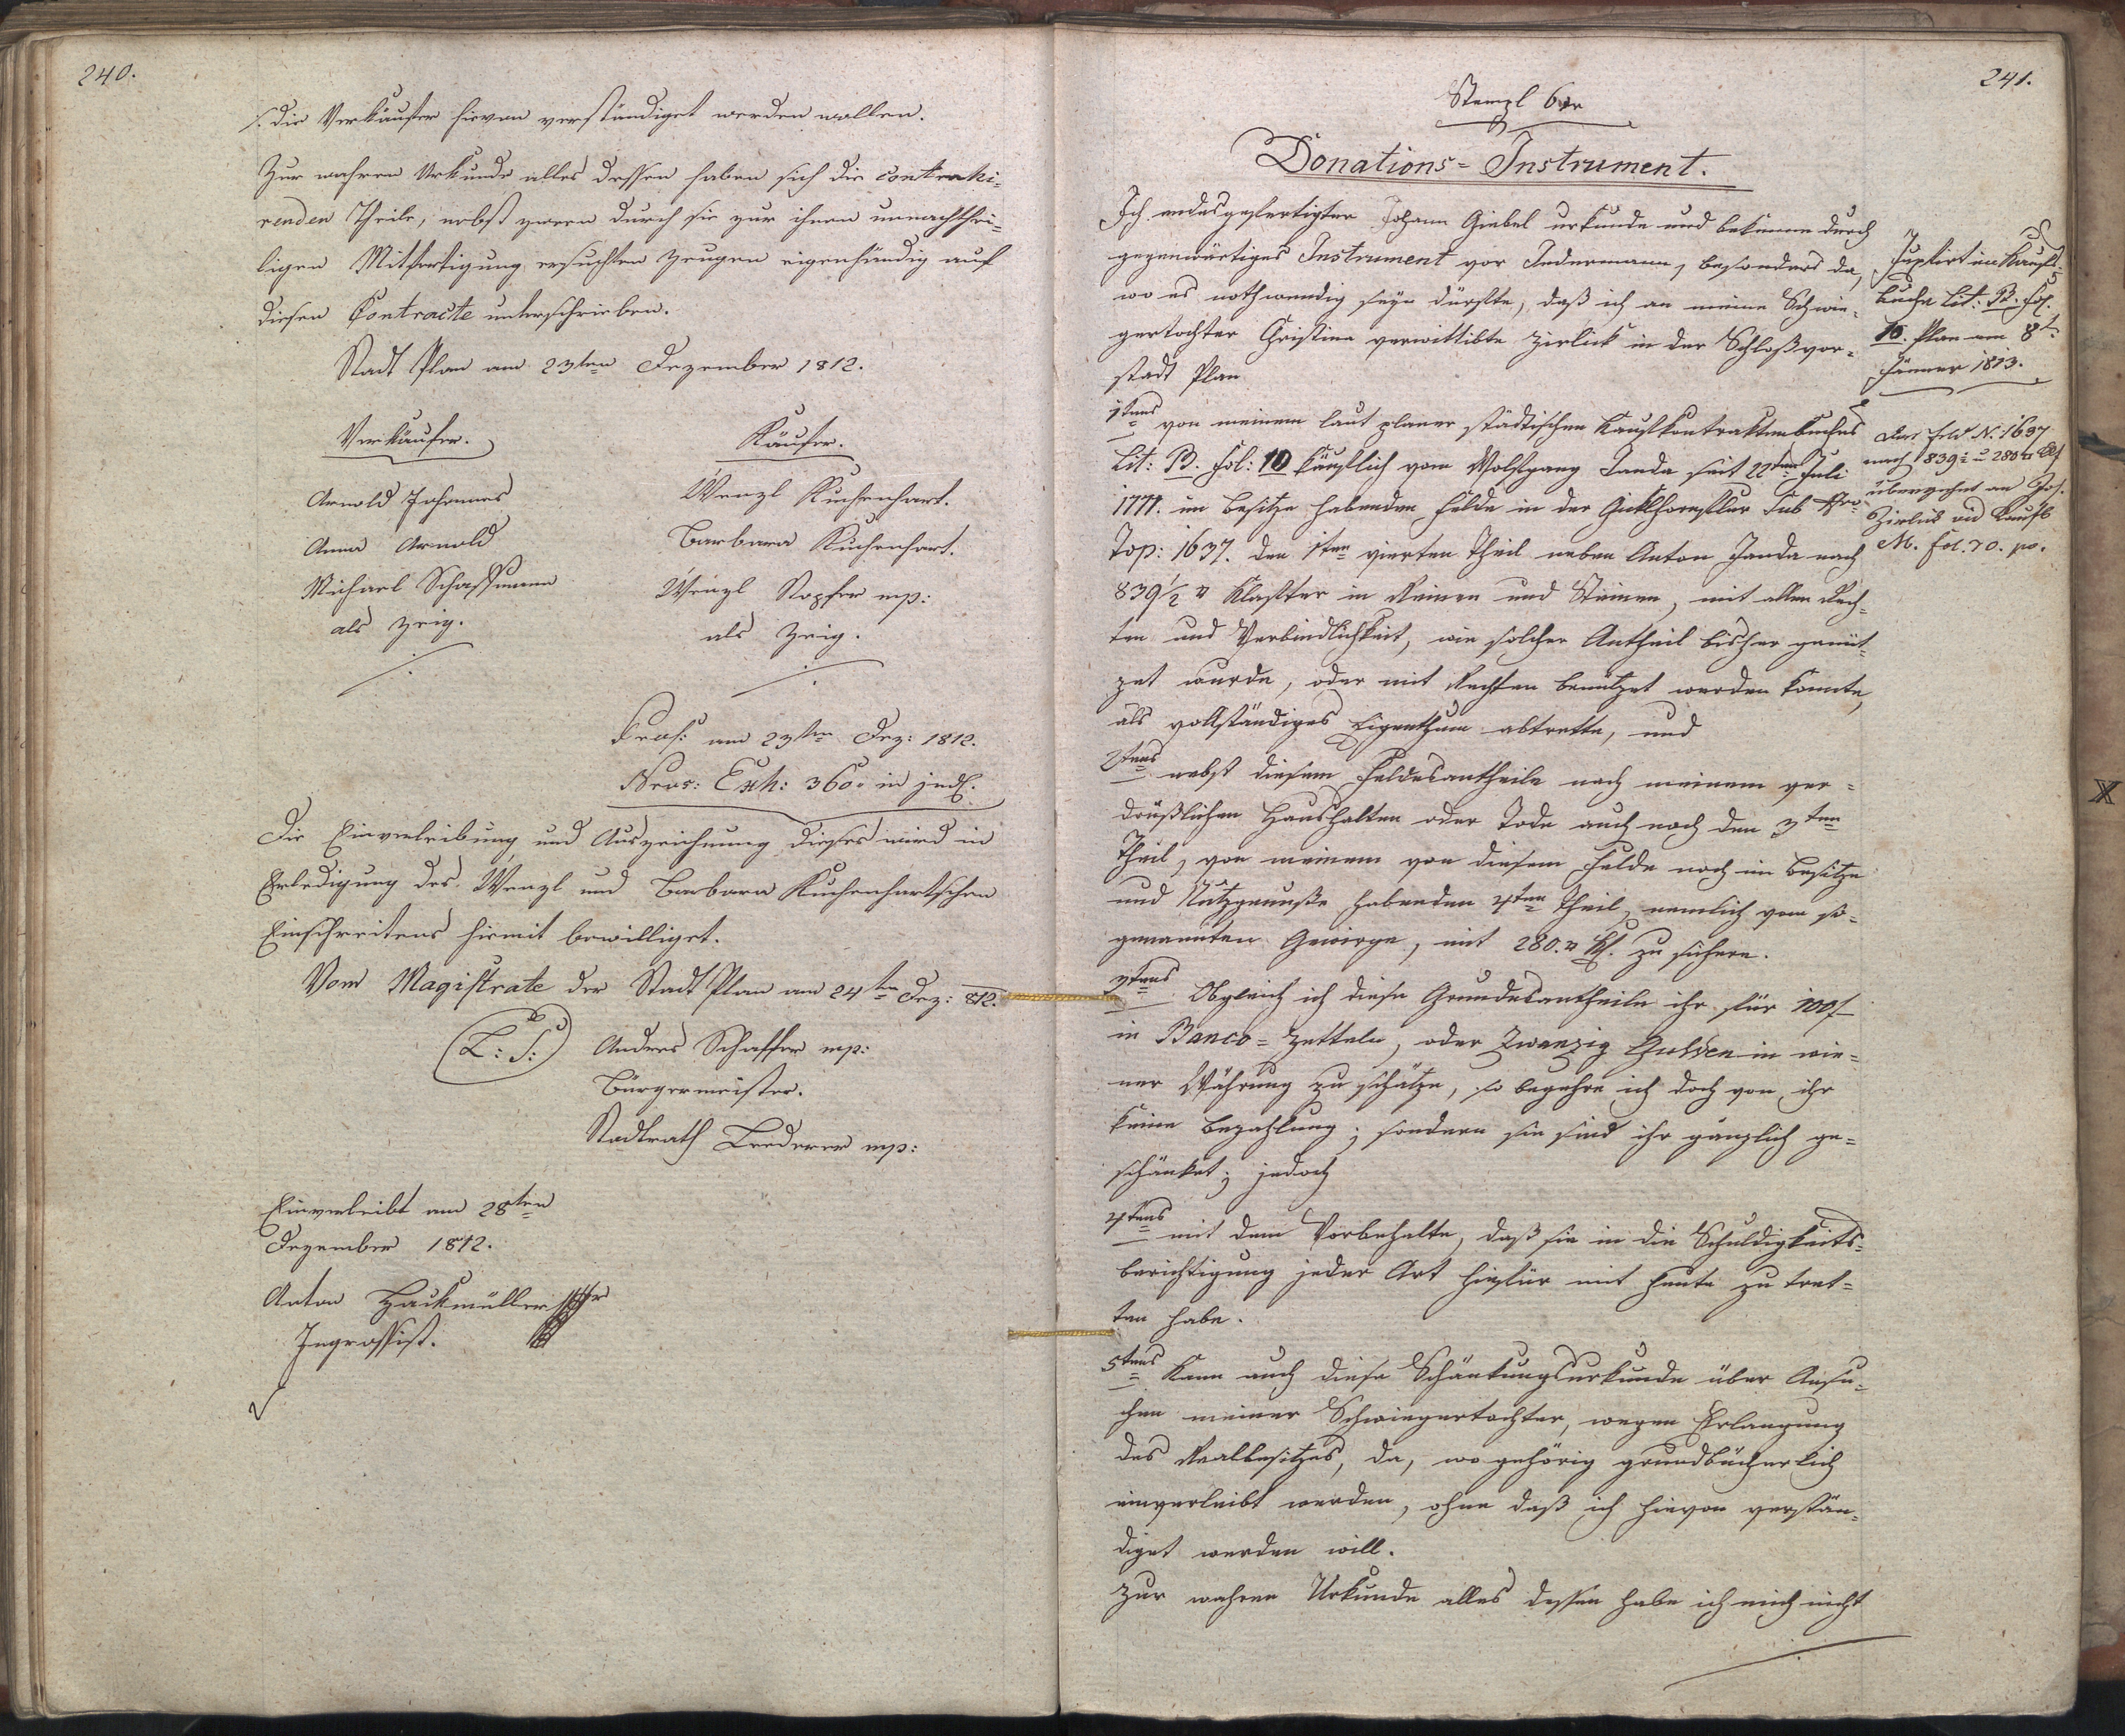 240.
/. die Verkäufer hievon verständiget werden wollen.
Zur wahren Urkunde alles dessen haben sich die contrahi-
renden Theile, nebst zween durch sie zur ihnen unnachthei-
ligen Mitfertigung ersuchten Zeugen eigenhändig auf
diesen Contracte unterschrieben.
Stadt Plan am 23ten Dezember 1812.
Verkäufer. Käufer.
Arnold Johannes Wenzl Kuchenhart.
Anna Arnold Barbara Kuchenhart.
Michael Schaffmann Wenzl Kopfer mp:
als Zeig. als Zeig.
Praes: am 23ten Dez: 1812.
Nros: Exh: 360. in jud.
Die Einverleibung und Auszeichnung dieses wird in
Erledigung des Wenzl und Barbara Kuchenhartschen
Einschreitens hiemit bewilliget.
Vom Magistrate der Stadt Plan am 24ten Dez: 812.
(L: S:) Andres Schaffer mp:
Bürgermeister.
Stadtrath Lederer mp:
Einverleibt am 28ten
Dezember 1812.
Anton Hackmüller
Ingrossist.
241.
Stempl 6 xr
Donations-Instrument.
Ich endesgefertigter Johann Giebel urkunde und bekenne durch
gegenwärtiges Instrument vor Jedermann, besonders da,
wo es nothwendig seyn dürfte, daß ich an meine Schwie-
gertochter Christina verwittibte Zierlick in der Schloßvor-
stadt Plan
1tens von meinem laut planer städtischen Kaufkontraktenbuches
Lit: B. Fol: 10 käuflich vom Wolfgang Janda seit 22ten Juli
1777. im Besitze habenden Felde in der Sub Nro
Top: 1637. den 1ten vierten Theil neben Anton Janda nach
839 1/2 □ Klafter in Reinen und Steinen, mit allen Rech-
ten und Verbindlichkeit, wie solcher Antheil bisher genüt-
zet wurde, oder mit Rechten benützet werden konnte,
als vollständiges Eigenthum abtrette, und
2tens nebst diesem Feldesantheile nach meinem ver-
drüßlichen Haushalten oder Tode auch noch den 3ten
Theil, von meinem von diesem Felde noch im Besitze
und Nutzgenusse habenden 4ten Theil, nemlich vom so-
genannten Gewirge, mit 280. □ Kl. zu sichern.
3tens Obgleich ich diese Grundesantheile ihr für 100 f
in Banco-Zetteln, oder Zwanzig Gulden in wie-
ner Währung zu schätze, so begehre ich doch von ihr
keine Bezahlung; sondern sie sind ihr gänzlich ge-
schänket; jedoch
4tens mit dem Vorbehalte, daß sie in die Schuldigkeits-
berichtigung jeder Art hiefür mit heute zu tret-
ten habe.
5tens Kann auch diese Schänkungsurkunde über Ansu-
chen meiner Schwiegertochter, wegen Erlangung
des Realbesitzes, da, wo gehörig grundbücherlich
einverleibt werden, ohne daß ich hievon verstän-
diget werden will.
Zur wahren Urkunde alles dessen habe ich mich nicht
Inxtirt im Kaufs-
buche Lit: B. Fol.
10. Plan am 8t
Jänner 1813.
Das Feld N: 1637
nach 839 1/2 u 280 □ Klf
übergehet an Jos.
Zierlick vid Kaufb
M. fol. 70. po.